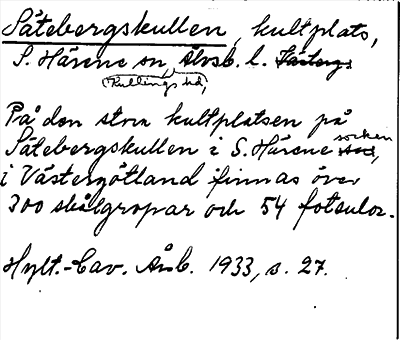 Såtebergskullen, kultplats,
S. Härene sn, Älvsb. l. Västerg.
Kullings hd,
På den stora kultplatsen på
Såtebergskullen i S. Härene socken,
i Västergötland finnas över
300 skålgropar och 54 fotsulor.
Hylt.-Cav. Årsb. 1933, s. 27.